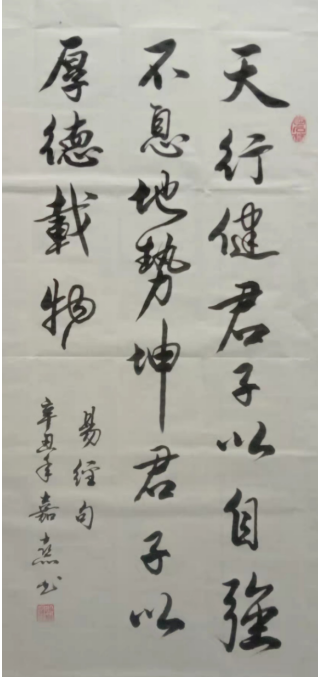 天行健君子以自強
不息地勢坤君子以
厚德載物
易經句
辛丑年嘉燾书